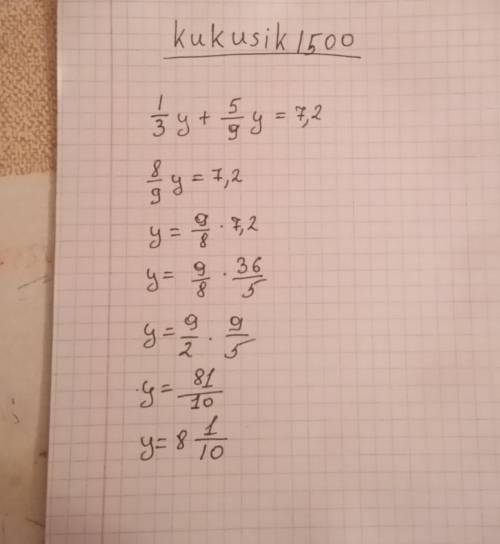 kukusik1500
1/3 y + 5/9 y = 7,2
8/9 y = 7,2
y = 9/8 · 7,2
y = 9/8 · 36/5
y = 9/2 · 9/5
y = 81/10
y = 8 1/10